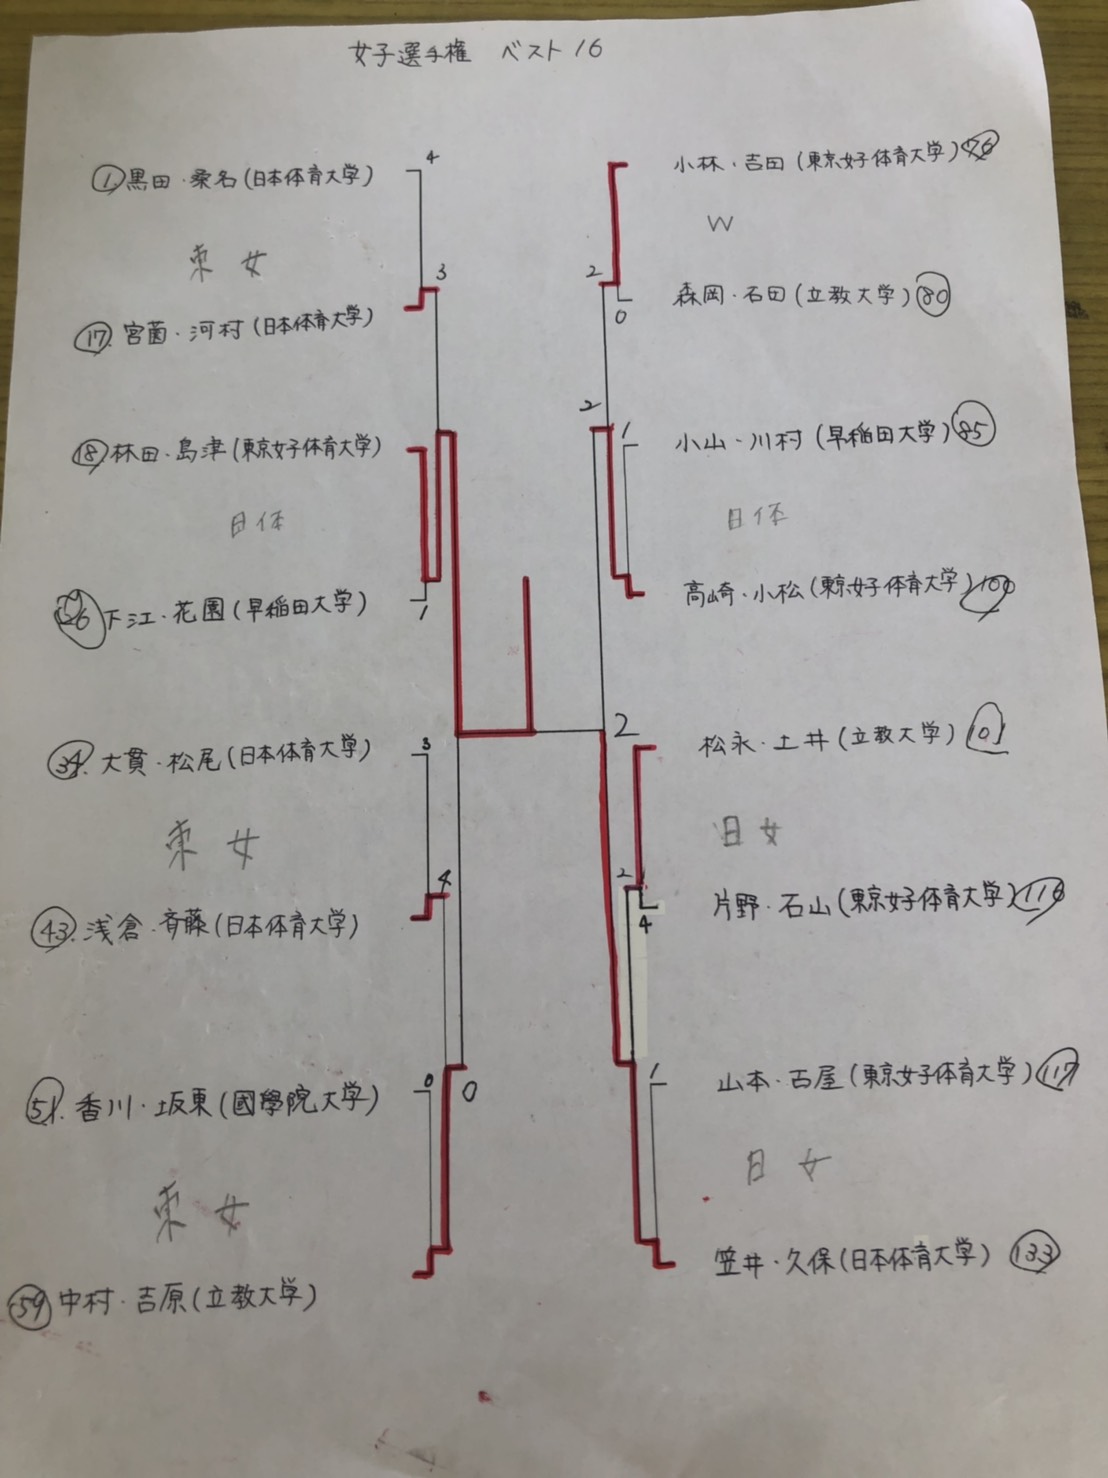 女子選手権 ベスト16
① 黒田・桑名(日本体育大学)
4
東女
3
⑰ 宮薗・河村(日本体育大学)
⑱ 林田・島津(東京女子体育大学)
日体
下江・花園(早稲田大学)
1
㉞ 大貫・松尾(日本体育大学)
3
東女
4
㊸ 浅倉・斉藤(日本体育大学)
51 香川・坂東(國學院大学)
0
0
東女
59 中村・吉原(立教大学)
小林・吉田(東京女子体育大学) 76
W
2
森岡・石田(立教大学) 80
0
2
1
小山・川村(早稲田大学) 85
日体
高崎・小松(東京女子体育大学) 100
2
松永・土井(立教大学) 101
日女
2
片野・石山(東京女子体育大学) 116
4
1
山本・古屋(東京女子体育大学) 117
日女
笠井・久保(日本体育大学) 133